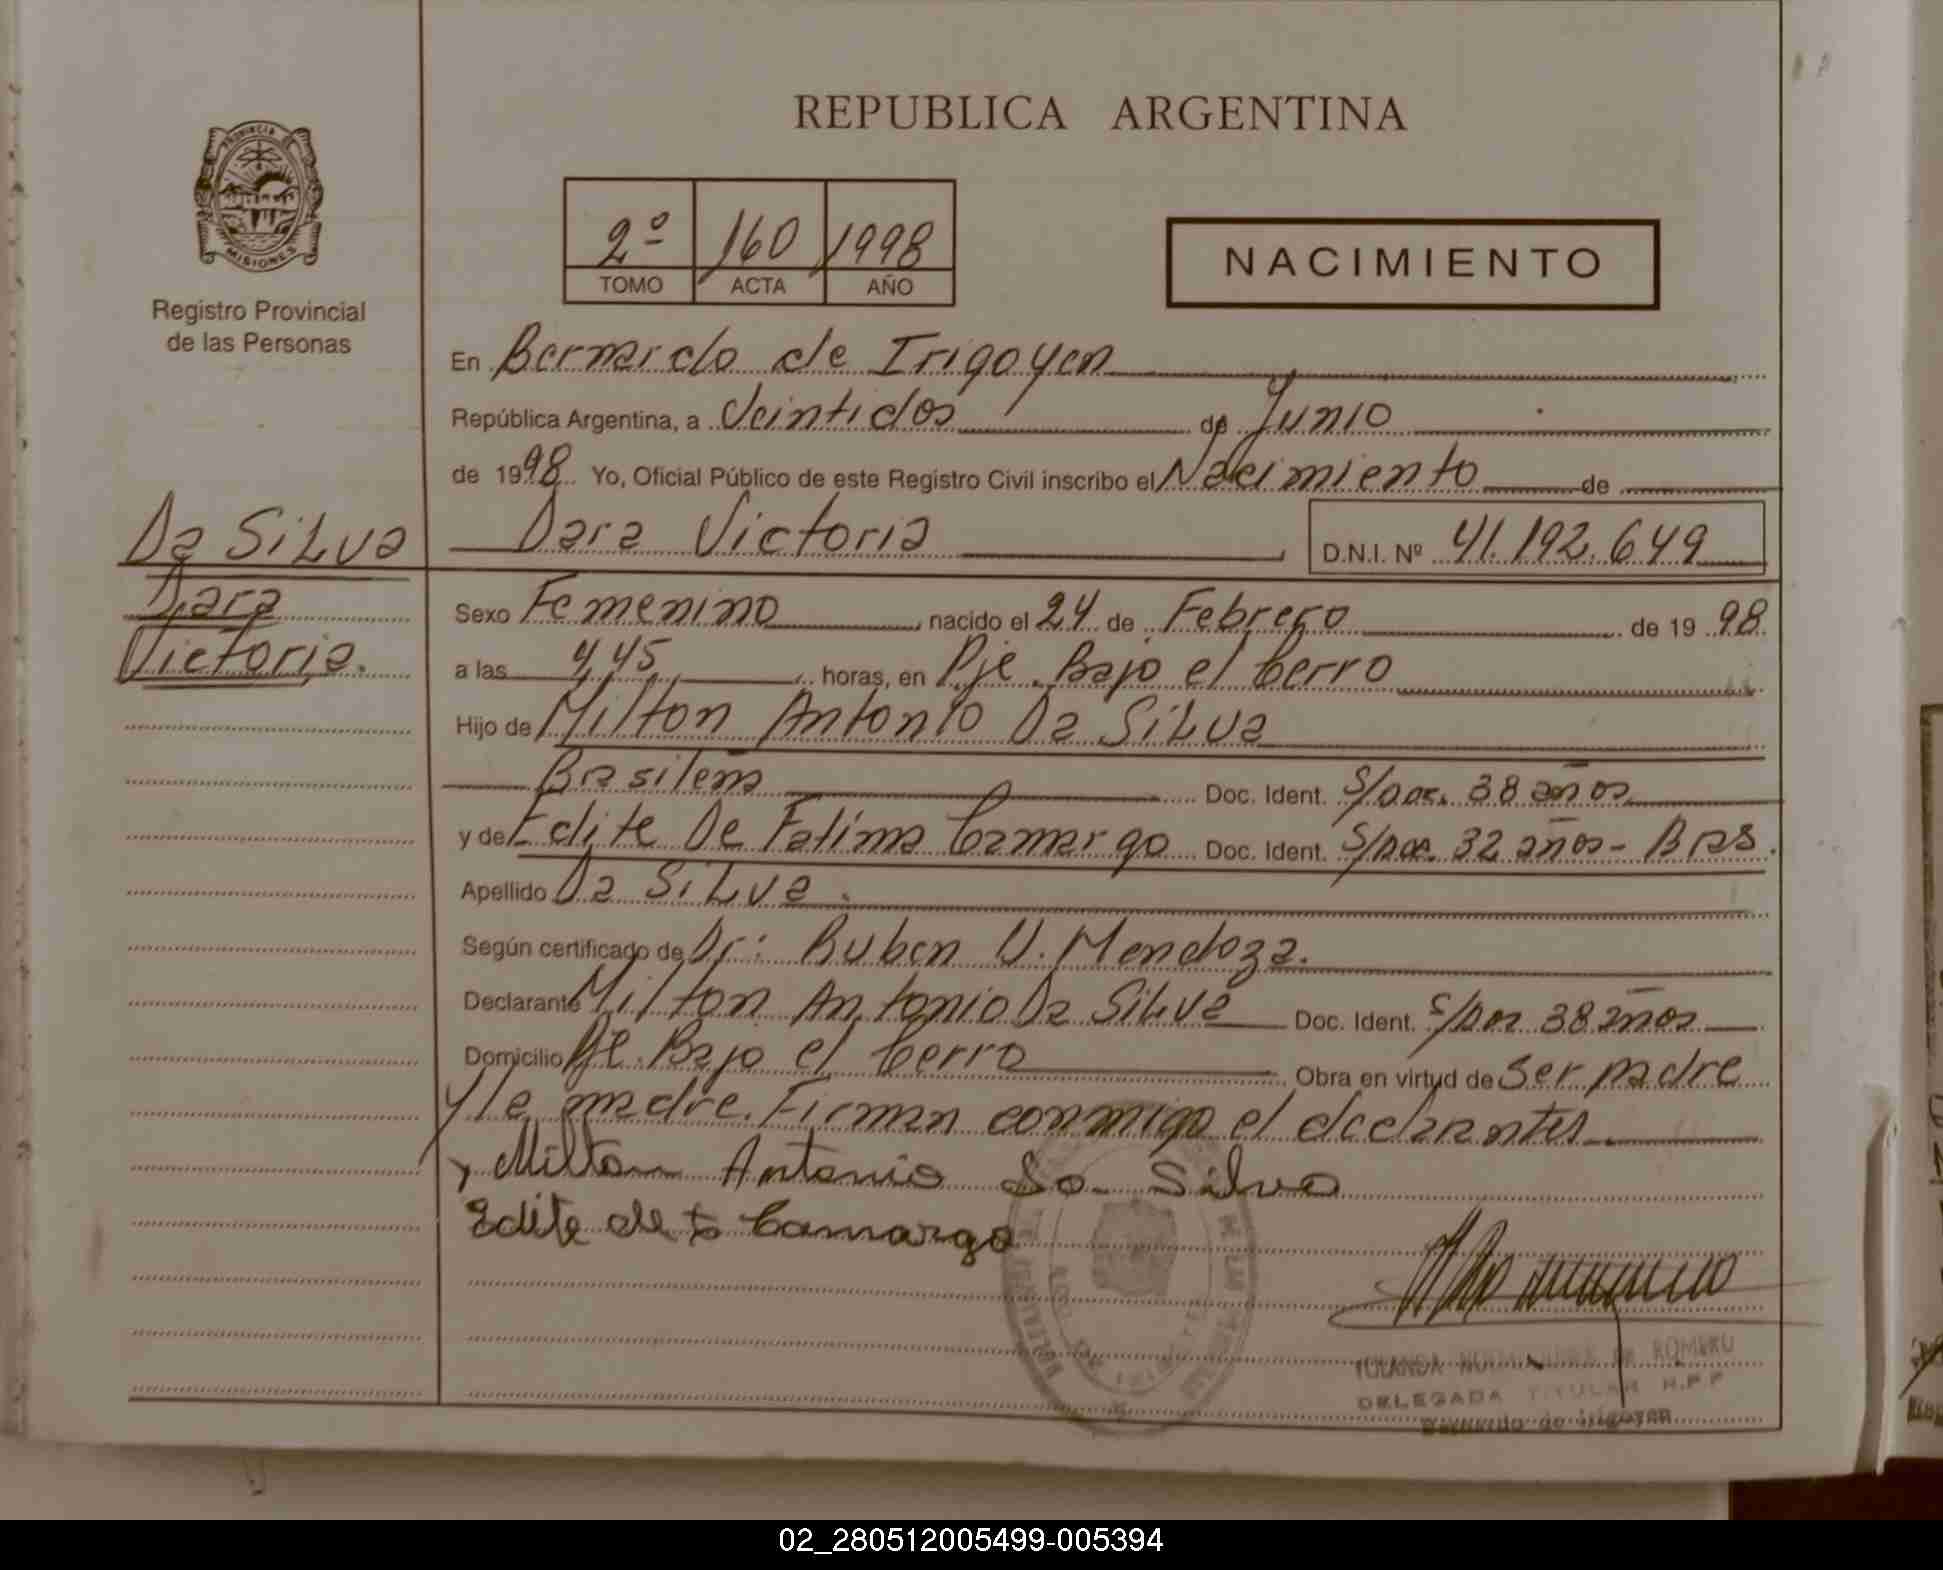 REPUBLICA ARGENTINA
PROVINCIA
MISIONES
Registro Provincial
de las Personas
2º 160 1998
TOMO ACTA AÑO
NACIMIENTO
En Bernardo de Irigoyen
República Argentina, a Veintidos de Junio
de 1998 Yo, Oficial Público de este Registro Civil inscribo el Nacimiento de
Da SiLva
Dara
Victoria.
Dara Victoria D.N.I. Nº 41.192.649
Sexo Femenino, nacido el 24 de Febrero de 1998
a las 4,45 horas, en Pje. Bajo el Cerro
Hijo de Milton Antonio Da SiLva
Brasileña Doc. Ident. S/Doc. 38 años
y de Edite De Fatima Camargo Doc. Ident. S/Doc. 32 años - Bras.
Apellido Da SiLva.
Según certificado de Dr: Ruben U. Mendoza.
Declarante Milton Antonio Da SiLva Doc. Ident. S/Doc 38 años
Domicilio Pje. Bajo el Cerro Obra en virtud de Ser padre
y la madre. Firman conmigo el declarantes.
Milton Antonio Da Silva
Edite de Camargo
YOLANDA DE ROMERO
DELEGADA TITULAR R.P.P
Bernardo de Irigoyen
02_280512005499-005394